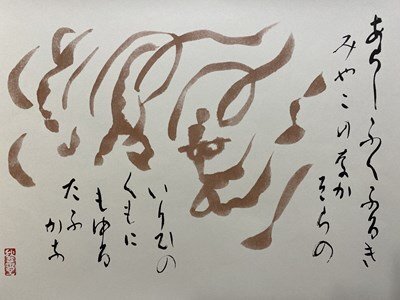 あらしふくふるき
みやこの奈か
そらの
いりひの
くもに
もゆる
たふ
かな